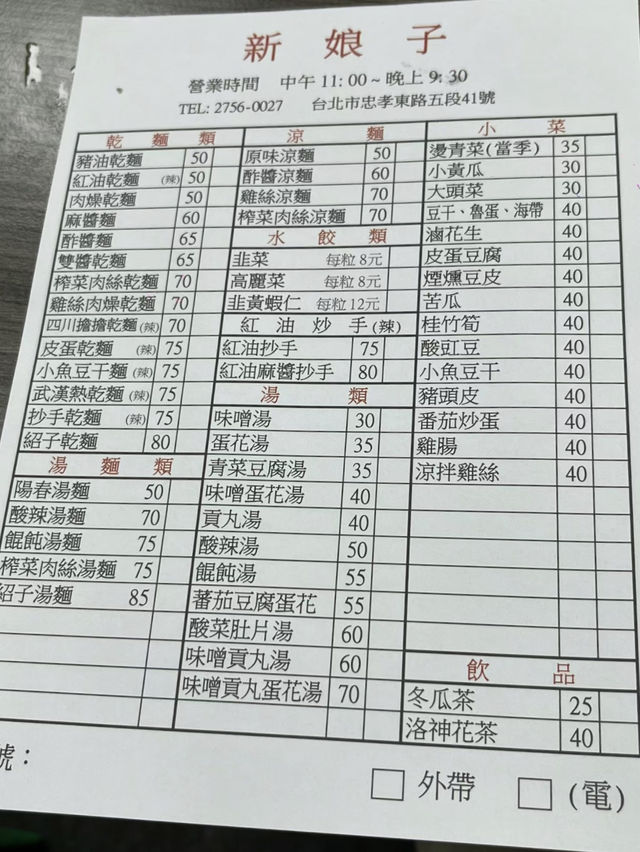 新娘子
營業時間 中午 11:00 ~ 晚上 9:30
TEL: 2756-0027 台北市忠孝東路五段41號
乾麵類
豬油乾麵 50
紅油乾麵 (辣) 50
肉燥乾麵 50
麻醬麵 60
酢醬麵 65
雙醬乾麵 65
榨菜肉絲乾麵 70
雞絲肉燥乾麵 70
四川擔擔乾麵(辣) 70
皮蛋乾麵 (辣) 75
小魚豆干麵(辣) 75
武漢熱乾麵(辣) 75
抄手乾麵 (辣) 75
紹子乾麵 80
湯麵類
陽春湯麵 50
酸辣湯麵 70
餛飩湯麵 75
榨菜肉絲湯麵 75
紹子湯麵 85
涼麵
原味涼麵 50
酢醬涼麵 60
雞絲涼麵 70
榨菜肉絲涼麵 70
水餃類
韭菜 每粒 8元
高麗菜 每粒 8元
韭黃蝦仁 每粒 12元
紅油炒手(辣)
紅油抄手 75
紅油麻醬抄手 80
湯類
味噌湯 30
蛋花湯 35
青菜豆腐湯 35
味噌蛋花湯 40
貢丸湯 40
酸辣湯 50
餛飩湯 55
蕃茄豆腐蛋花 55
酸菜肚片湯 60
味噌貢丸湯 60
味噌貢丸蛋花湯 70
小菜
燙青菜(當季) 35
小黃瓜 30
大頭菜 30
豆干、魯蛋、海帶 40
滷花生 40
皮蛋豆腐 40
煙燻豆皮 40
苦瓜 40
桂竹筍 40
酸豇豆 40
小魚豆干 40
豬頭皮 40
番茄炒蛋 40
雞腸 40
涼拌雞絲 40
飲品
冬瓜茶 25
洛神花茶 40
號：
□ 外帶 □ (電)